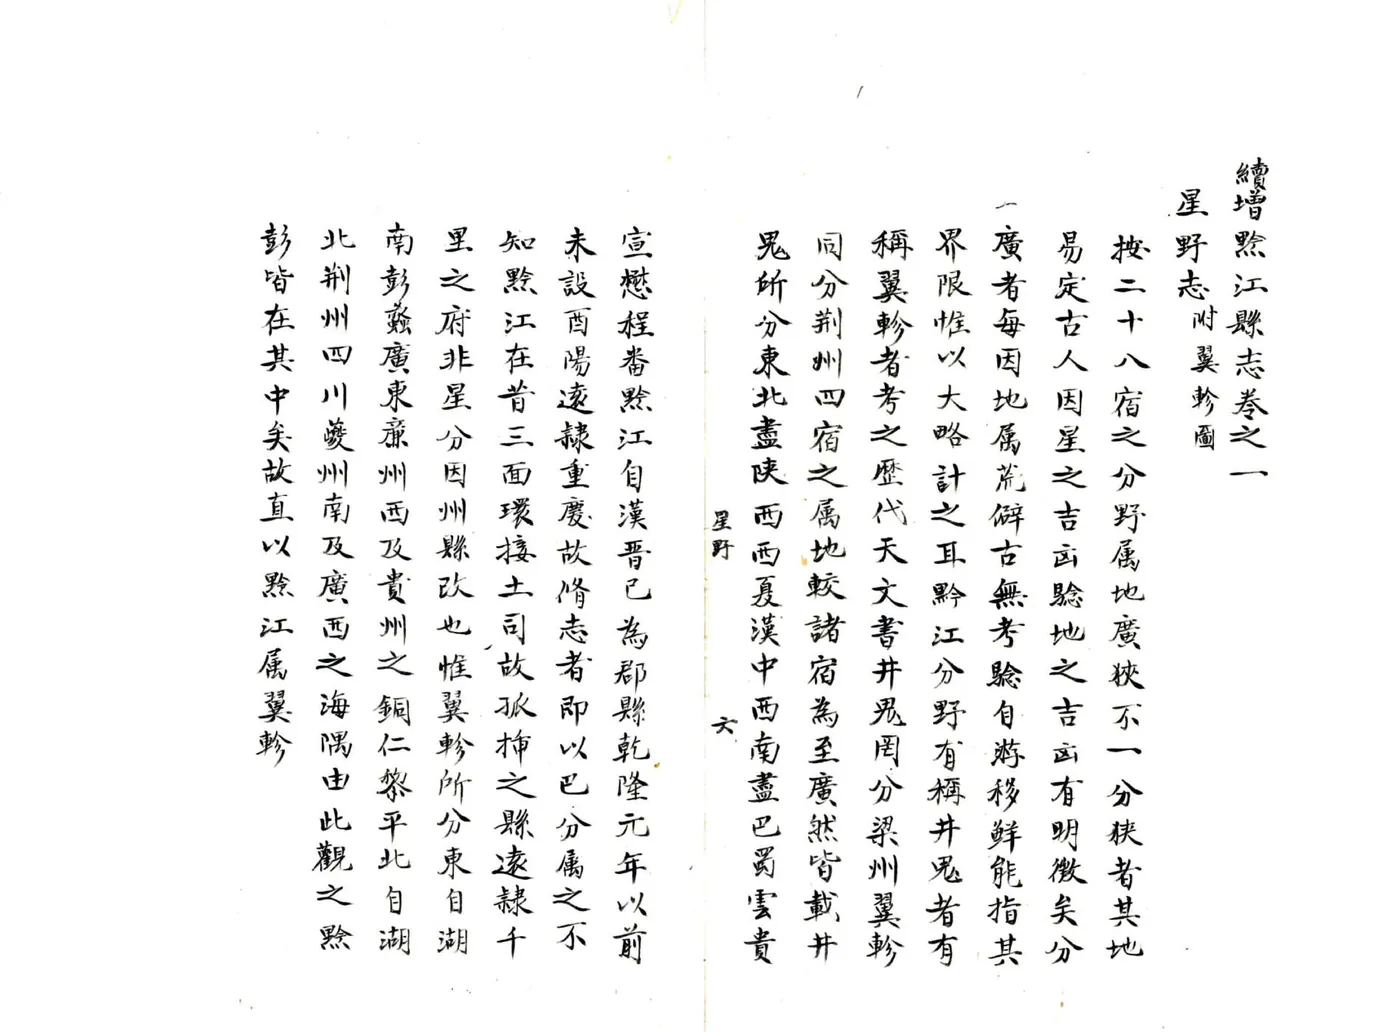 續增黔江縣志卷之一
星野志附翼軫圖
按二十八宿之分野属地廣狹不一分狹者其地
易定古人因星之吉凶騐地之吉凶有明徵矣分
廣者每因地属荒僻古無考騐自游移鮮能指其
界限惟以大略計之耳黔江分野有稱井鬼者有
稱翼軫者考之歷代天文書井鬼罔分梁州翼軫
同分荆州四宿之属地較諸宿為至廣然皆載井
鬼所分東北盡陕西西夏漢中西南盡巴蜀雲貴
星野
六
宣懋程畨黔江自漢晋已為郡縣乾隆元年以前
未設酉陽遠隸重慶故脩志者即以巴分属之不
知黔江在昔三面環接土司故孤揷之縣遠隸千
里之府非星分因州縣改也惟翼軫所分東自湖
南彭蠡廣東亷州西及貴州之銅仁黎平北自湖
北荆州四川夔州南及廣西之海隅由此觀之黔
彭皆在其中矣故直以黔江属翼軫